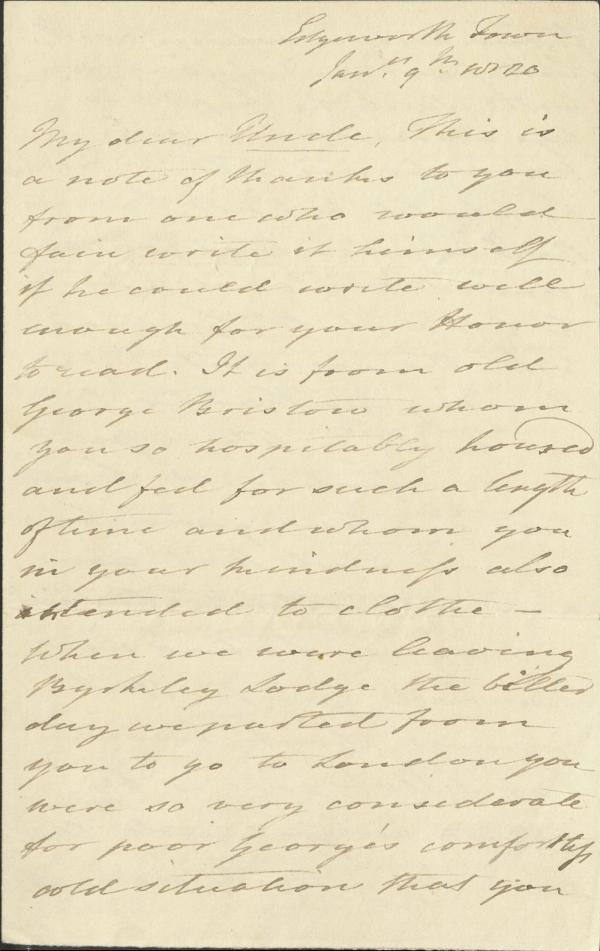 Edgeworth Town
Jan.y 9th 1820
My dear Uncle, This is
a note of thanks to you
from one who would
fain write it himself
if he could write well
enough for your Honor
to read. It is from old
George Bristow whom
you so hospitably housed
and fed for such a length
of time and whom you
in your kindness also
intended to clothe —
When we were leaving
Byrkley Lodge the bitter
day we parted from
you to go to London you
were so very considerate
for poor George's comfortless
cold situation that you